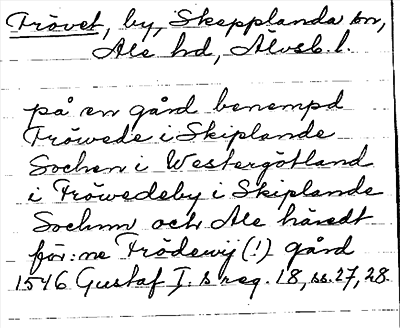 Frövet, by, Skepplanda sn,
Ale hd, Älvsb. l.
på en gård benempd
Fröwede i Skiplande
Sochen i Westergötland
i Fröwedeby i Skiplande
Sochnn och Ale häredt
för:ne Frödewij (!) gård
1546 Gustaf I.s reg. 18, ss. 27, 28